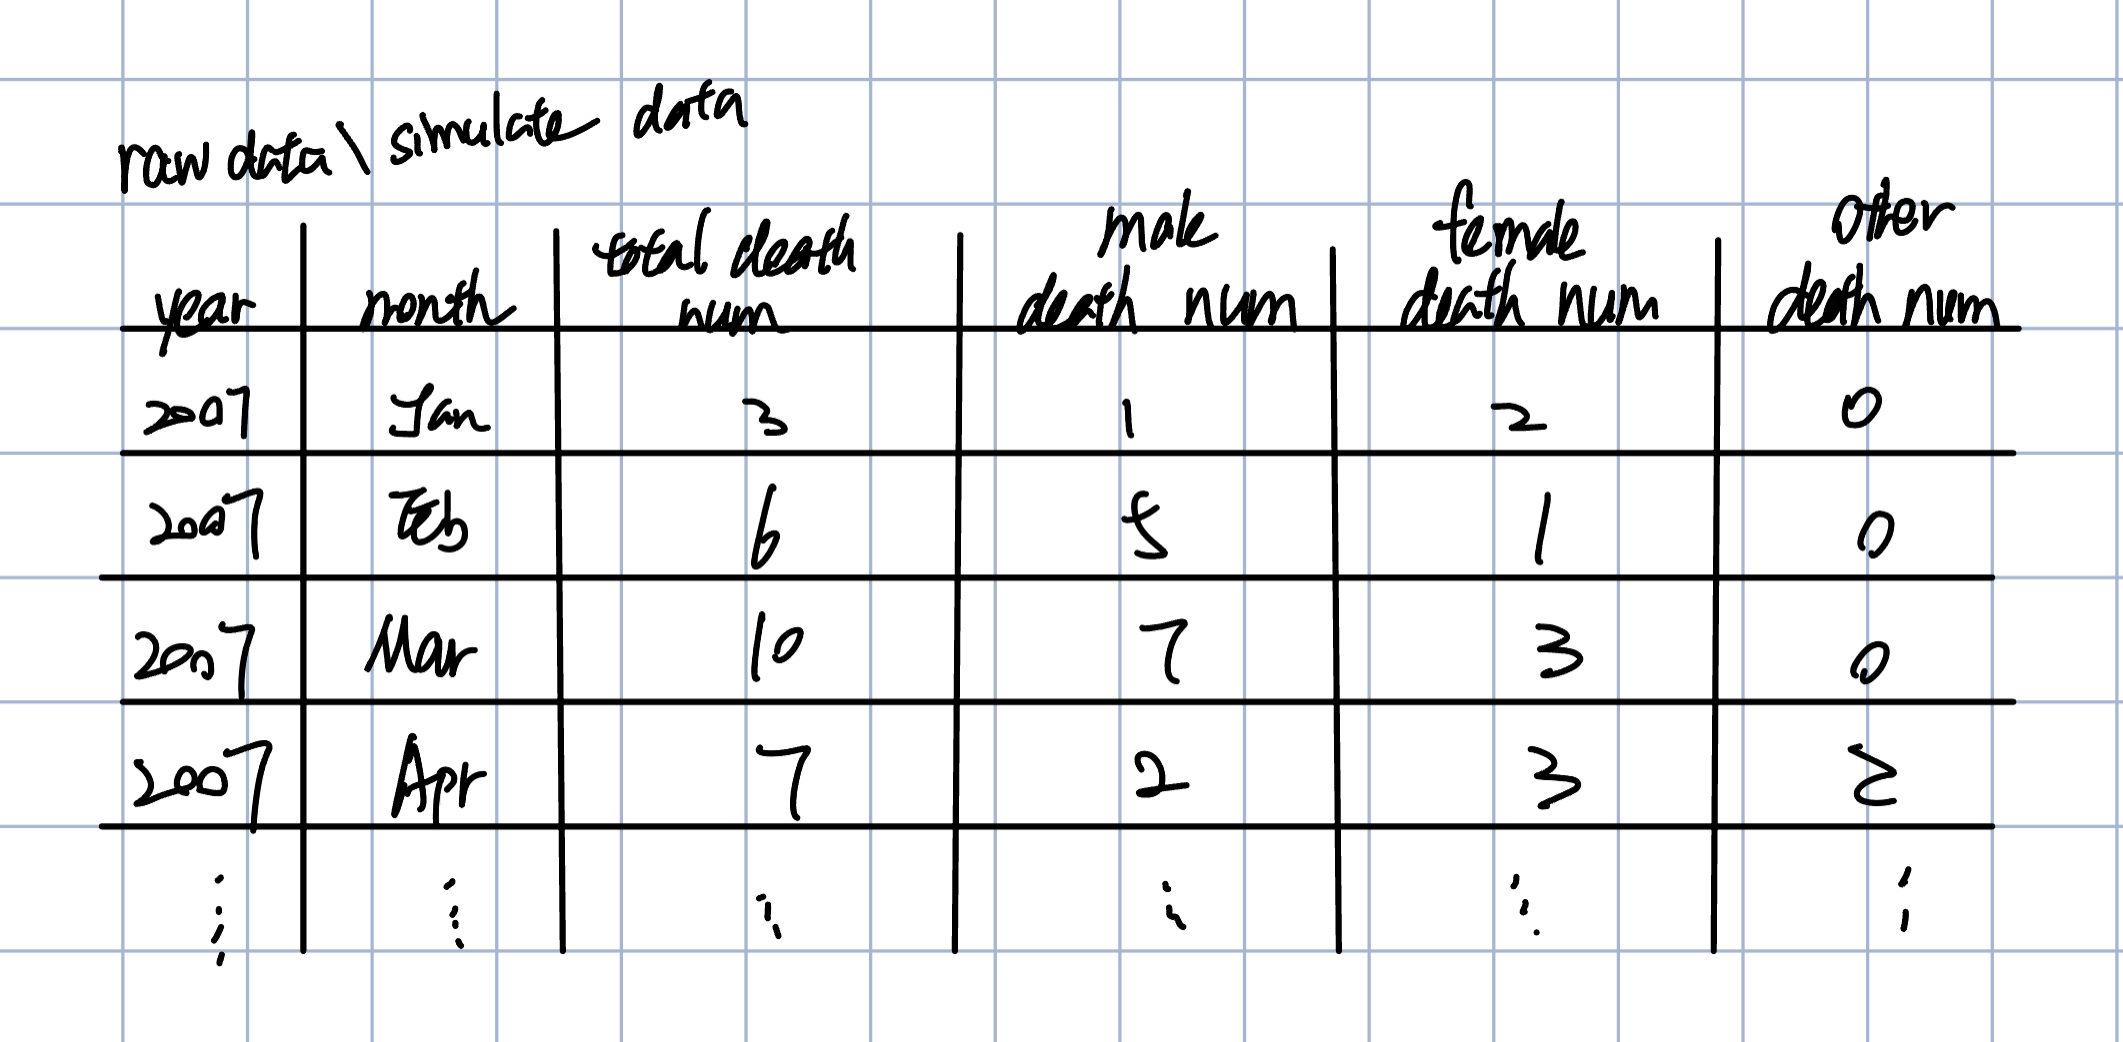 raw data \ simulate data
year | month | total death num | male death num | female death num | other death num
2007 | Jan | 3 | 1 | 2 | 0
2007 | Feb | 6 | 5 | 1 | 0
2007 | Mar | 10 | 7 | 3 | 0
2007 | Apr | 7 | 2 | 3 | 2
⋮ | ⋮ | ⋮ | ⋮ | ⋮ | ⋮